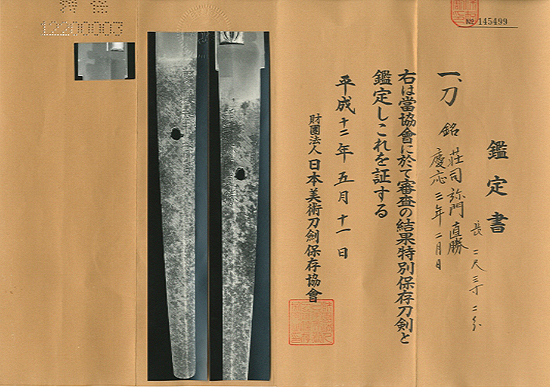 № 145499
鑑定書
一、刀 銘 荘司弥門直勝
慶応三年二月日
長 二尺三寸二分
右は當協會に於て審査の結果特別保存刀剣と
鑑定しこれを証する
平成十二年五月十一日
財團法人 日本美術刀劍保存協會
12200003